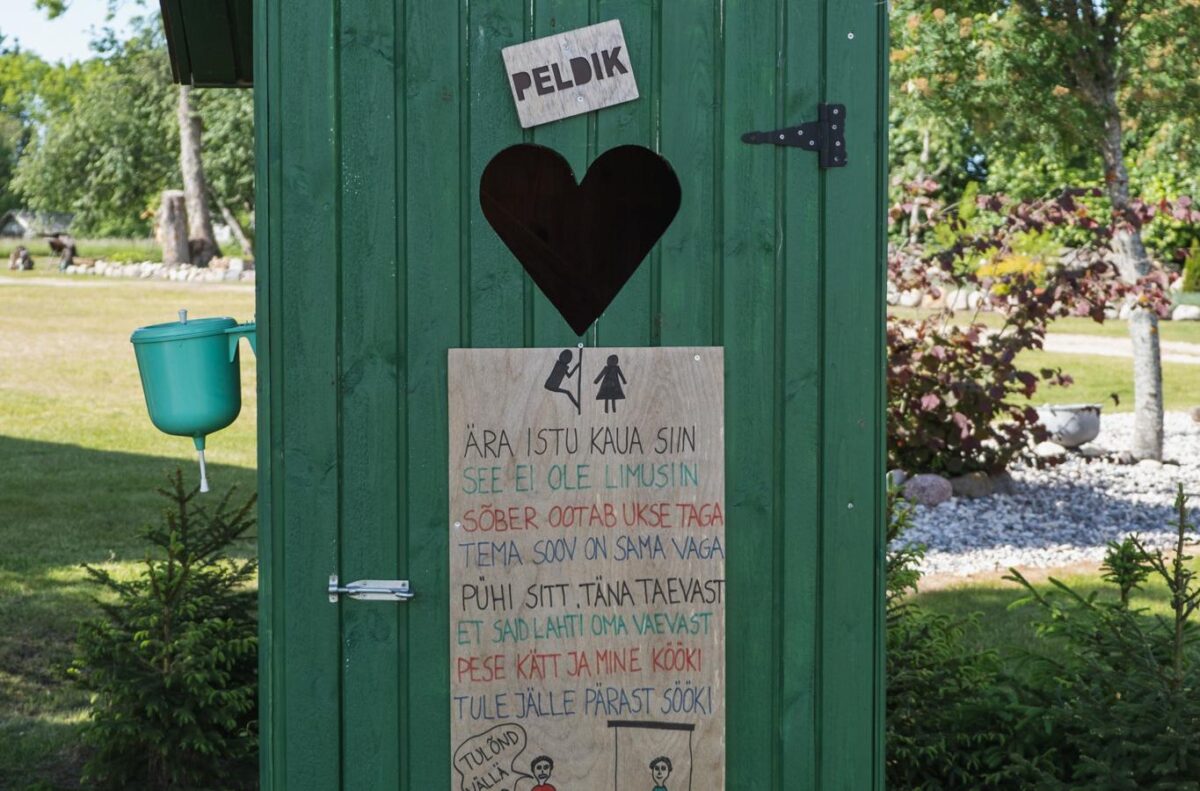 PELDIK
ÄRA ISTU KAUA SIIN
SEE EI OLE LIMUSIIN
SÕBER OOTAB UKSE TAGA
TEMA SOOV ON SAMA VAGA
PÜHI SITT, TÄNA TAEVAST
ET SAID LAHTI OMA VAEVAST
PESE KÄTT JA MINE KÖÖKI
TULE JÄLLE PÄRAST SÖÖKI
TULÕND
VÄLLÄ